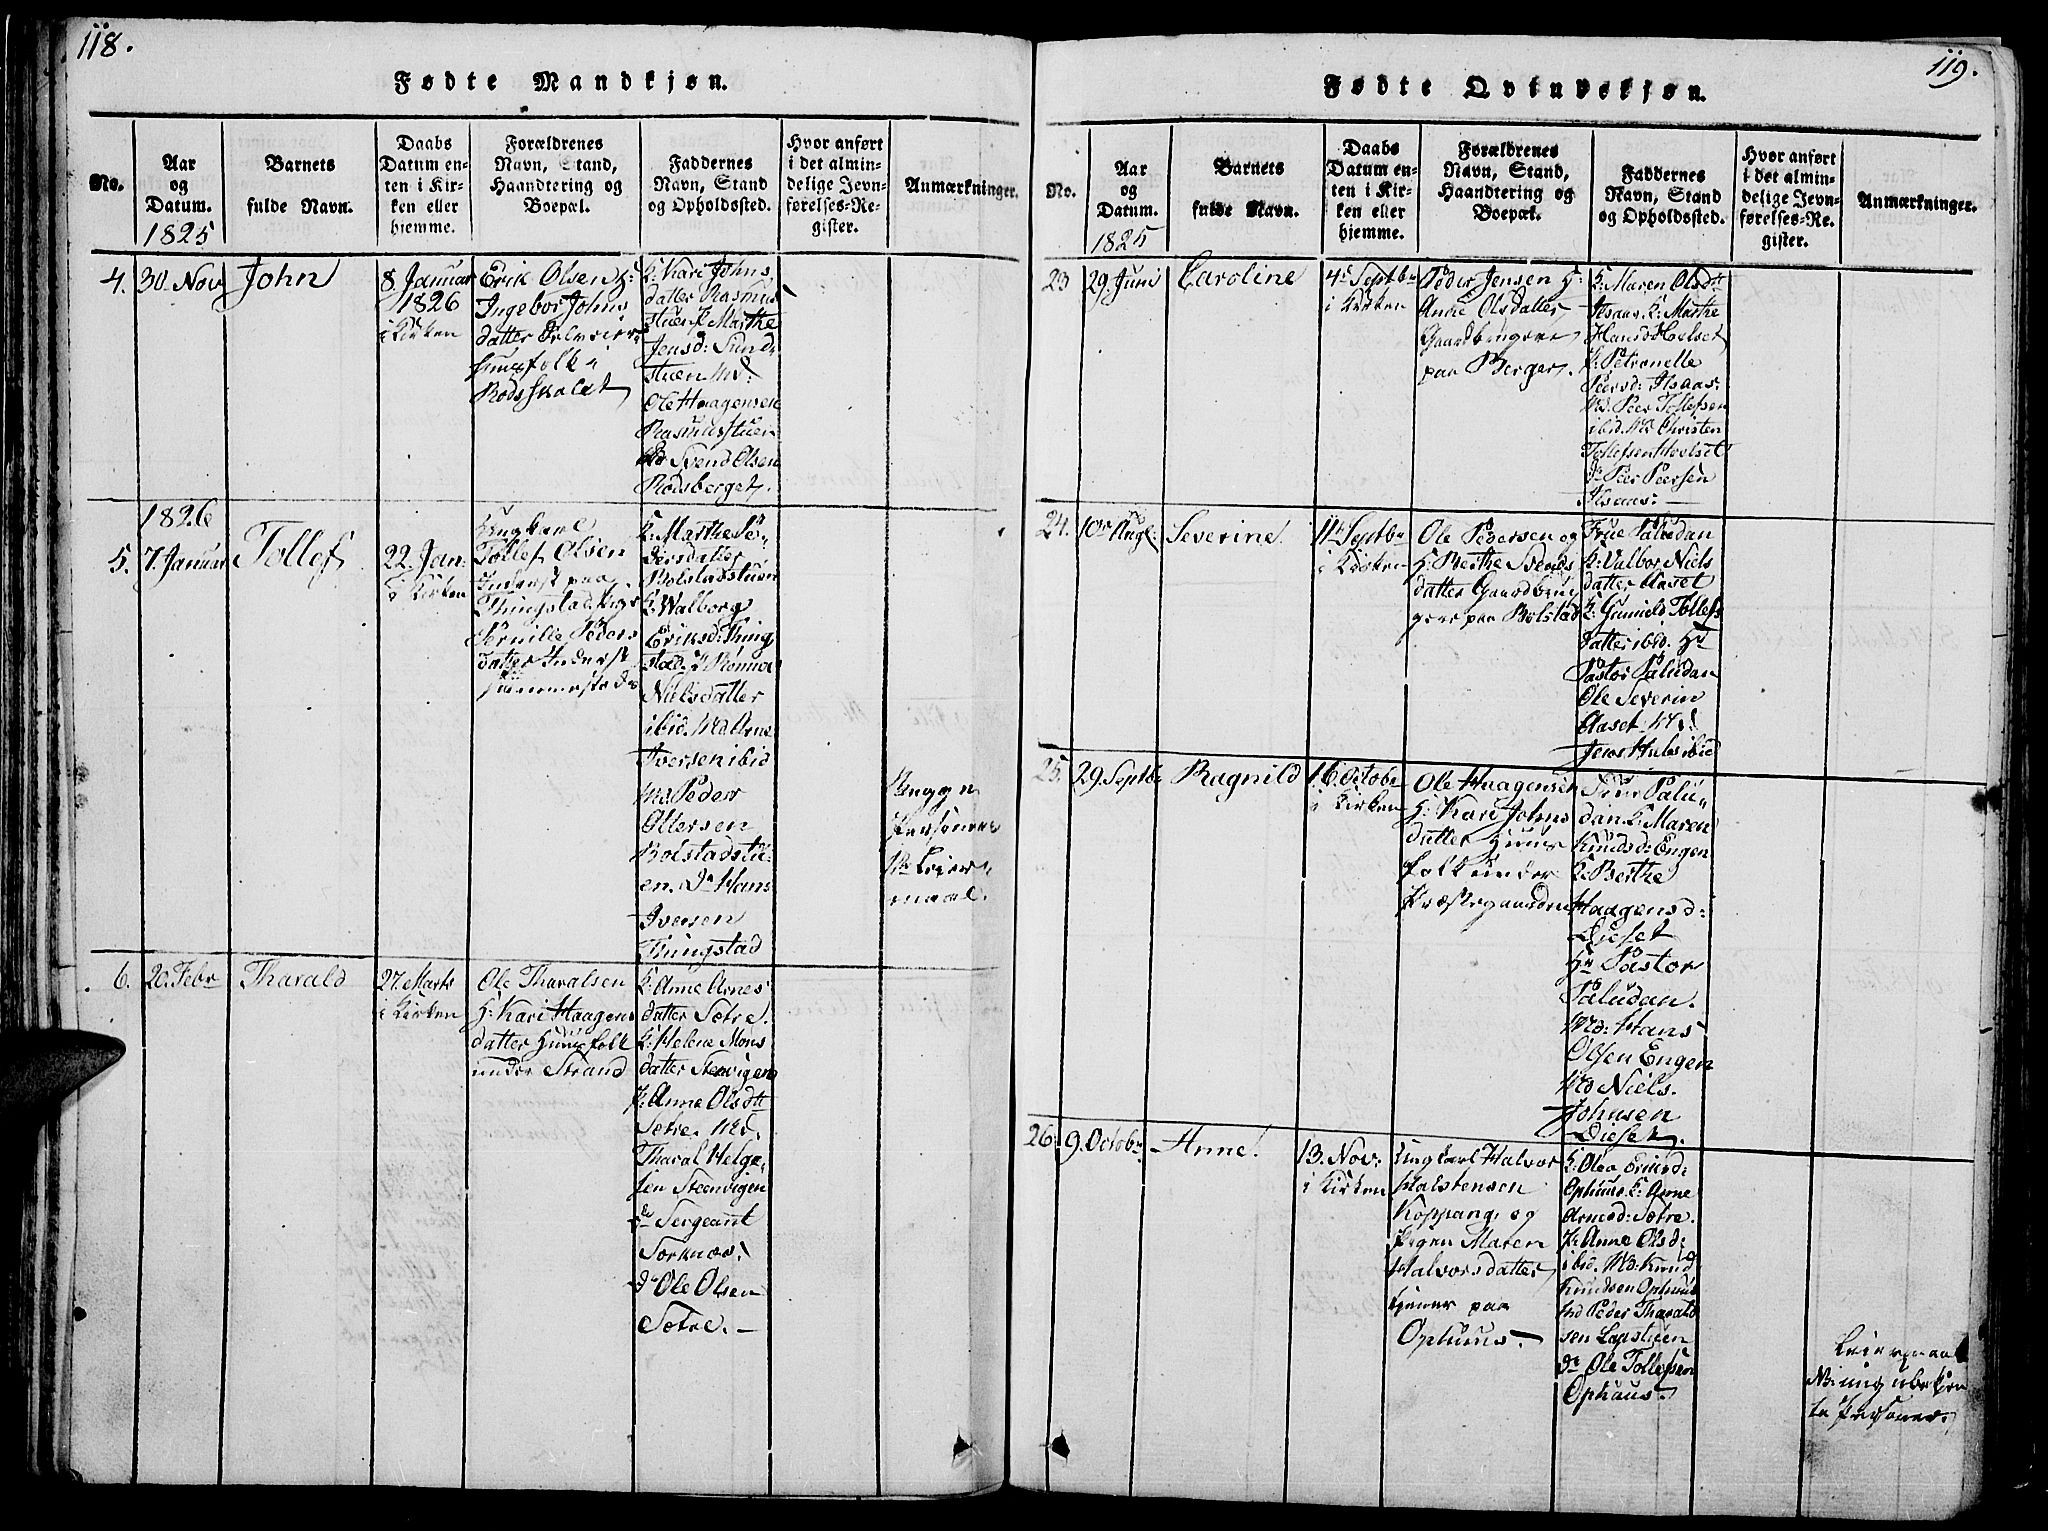 118.
Fødte Mandkjøn.
No.
Aar
og
Datum.
1825
Barnets
fulde Navn.
Daabs
Datum en-
ten i Kir-
ken eller
hjemme.
Forældrenes
Navn, Stand,
Haandtering og
Boepæl.
Faddernes
Navn, Stand
og Opholdssted.
Hvor anført
i det almin-
delige Jevn-
førelses-Re-
gister.
Anmærkninger.
4.
30. Nov
John
8. Januar
1826
i Kirken
Erik Olsen H:
Ingebor Johns
datter
Huusfolk i
Rødsskalet
K: Kari Johns
datter Rasmus
stuen P. Marthe
Jensd: Sund
stuen Md:
Ole Haagensen
Rasmusstuen
Svend Olsen
Rødsberget.
1826
5.
7. Januar
Tollef
22. Jan:
i Kirken
Ungkarl
Tollef Olsen
Inderst paa
Thingstad
Pernille Peders
datter Inderst
sammesteds
K: Marthe Pe-
dersdatter
Bolstadstuen
K: Walborg
Eriksd: Thing
stad. P
Nielsdatter
ibid. Md Arne
Iversen ibid
Md. Peder
Ottersen
Bolstadstu-
en. Dn Hans
Iversen
Thingstad
Begge
Personers
1te Leier-
maal.
6.
20. Febr
Tharald
27. Marts
i Kirken
Ole Tharalsen
H: Kari Haagens
datter Huusfolk
under Strand
K: Anne Arnes
datter Sætre.
K: Helene Mons
datter Steenvigen
P: Anne Olsdtt
Sætre. Md.
Tharal Helge-
sen Steenvigen
Sergeant
Sorknæs.
Ole Olsen
Sætre. —
119.
Fødte Qvindekjøn.
No.
Aar
og
Datum.
1825
Barnets
fulde Navn.
Daabs
Datum en-
ten i Kir-
ken eller
hjemme.
Forældrenes
Navn, Stand,
Haandtering og
Boepæl.
Faddernes
Navn, Stand
og Opholdssted.
Hvor anført
i det almin-
delige Jevn-
førelses-Re-
gister.
Anmærkninger.
23
29. Juni
Caroline
4de Septbr
i Kirken
Peder Jensen H:
Anne Olsdatter
Gaardbrugere
paa Berger.
K: Maren Olsdtt
K: Marthe
Hansd
P: Petronelle
Peersd:
Md. Peer Tollefsen
ibid. Md Christen
Tollefsen
Peer Peersen
24.
10de Aug:
Severine
11te Septbr
i Kirken
Ole Pedersen og
H: Berthe Svends
datter Gaardbru
gere paa Bolstad
Frue Paludan
K: Valbor Niels
datter Aaset
K: Gunild Tollefs
datter ibid. Hr
Pastor Paludan
Ole Severin
Aaset Md.
Jens ibid
25.
29. Septbr
Ragnild
16. Octobr
i Kirken
Ole Haagensen
H: Kari Johns
datter Huus
folk under
Præstegaarden
Frue Palu-
dan K: Maren
Knudsd: Engen
K: Berthe
Haagensd:
Dieset
Hr Pastor
Paludan.
Md: Hans
Olsen Engen
Md Niels
Johnsen
Dieset.
26.
9. Octobr
Anne.
13. Nov:
i Kirken
Ungkarl Halvor
Halstensen
Koppang, og
Pigen Maren
Halvorsdatter
tjener paa
Ophuus. —
K: Olea
Ophuus. K: Anne
Arnesd: Sætre.
P: Anne Olsd:
ibid. Md: Knud
Knudsen Ophuus
Md Peder Tharald
sen Lapstuen
Ole Tollefsen
Ophuus.
Leiermaal
personer.